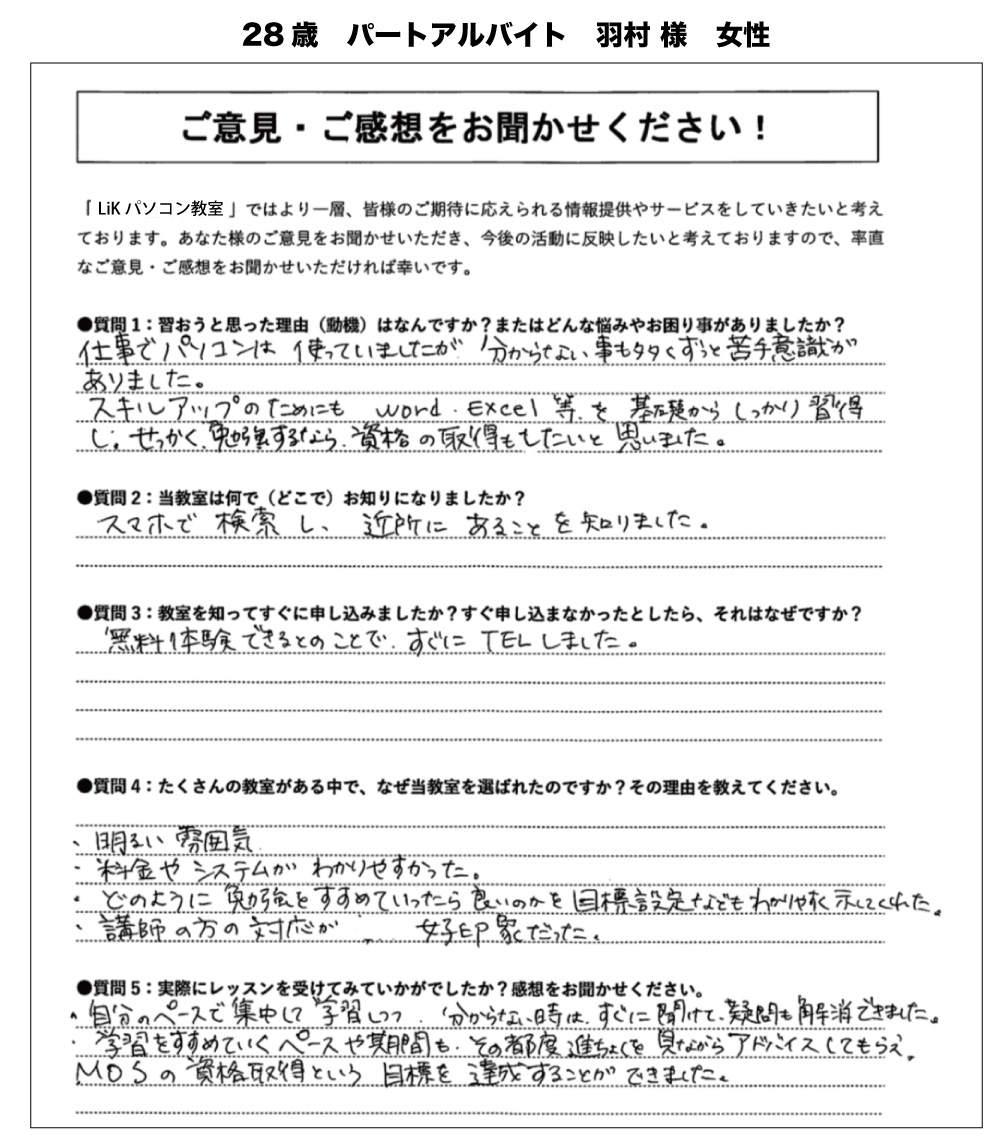 28歳　パートアルバイト　羽村 様　女性
ご意見・ご感想をお聞かせください！
「 LiK パソコン教室 」ではより一層、皆様のご期待に応えられる情報提供やサービスをしていきたいと考え
ております。あなた様のご意見をお聞かせいただき、今後の活動に反映したいと考えておりますので、率直
なご意見・ご感想をお聞かせいただければ幸いです。
●質問 1：習おうと思った理由（動機）はなんですか？またはどんな悩みやお困り事がありましたか？
仕事でパソコンは 使っていましたが 分からない事も多くずっと苦手意識が
ありました。
スキルアップのためにも word・Excel 等、を 基礎から しっかり 習得
し、せっかく、勉強するなら、資格の取得もしたいと思いました。
●質問 2：当教室は何で（どこで）お知りになりましたか？
スマホで 検索 し、 近所に あることを知りました。
●質問 3：教室を知ってすぐに申し込みましたか？すぐ申し込まなかったとしたら、それはなぜですか？
無料体験できるとのことで、すぐに TEL しました。
●質問 4：たくさんの教室がある中で、なぜ当教室を選ばれたのですか？その理由を教えてください。
・明るい 雰囲気
・料金や システムが わかりやすかった。
・どのように 勉強をすすめていったら良いのかを 目標設定などもわかりやすく示してくれた。
・講師の方の対応が 好印象だった。
●質問 5：実際にレッスンを受けてみていかがでしたか？感想をお聞かせください。
・自分のペースで集中して学習しつつ、分からない時は、すぐに聞けて、疑問も解消できました。
・学習をすすめていくペースや期間も、その都度進ちょくを見ながらアドバイスしてもらえ、
MOSの資格取得という 目標を 達成することができました。